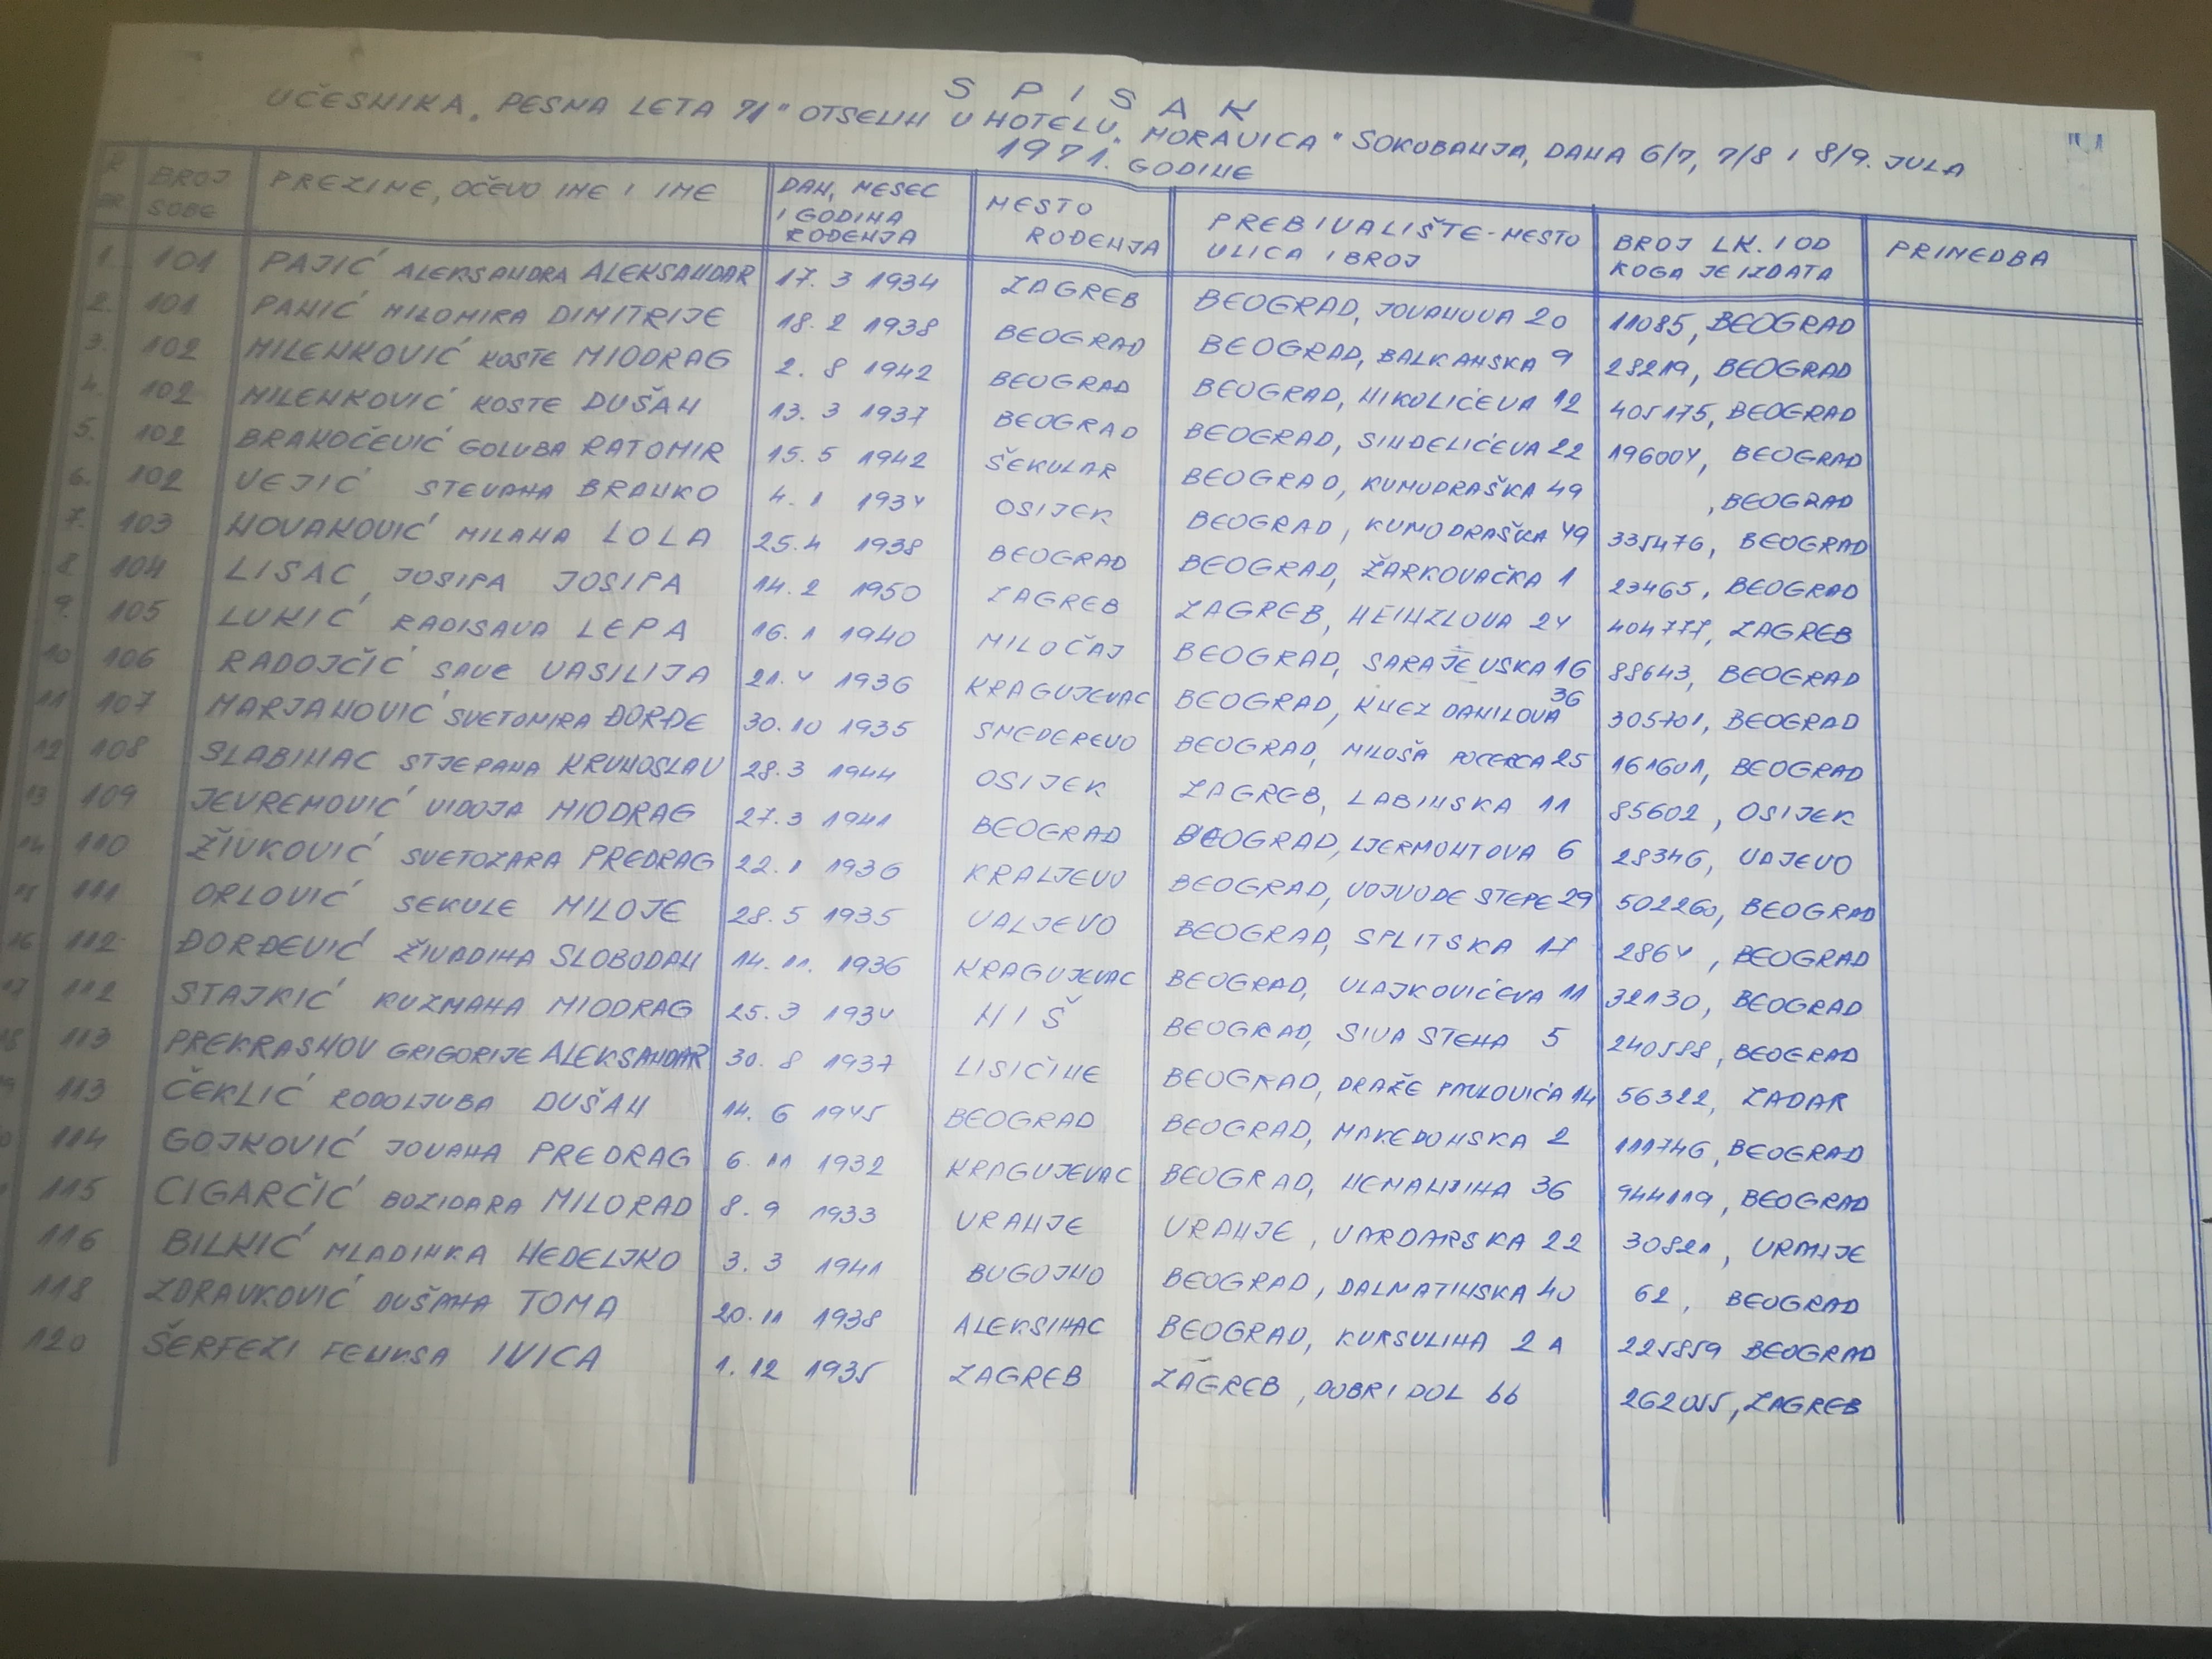 S P I S A K
UČESNIKA „PESMA LETA 71" OTSELIH U HOTELU „MORAVICA" SOKOBANJA, DANA 6/7, 7/8 I 8/9. JULA
1971. GODINE
R BR BROJ SOBE PREZIME, OČEVO IME I IME DAN, MESEC I GODINA ROĐENJA MESTO ROĐENJA PREBIVALIŠTE-MESTO ULICA I BROJ BROJ LK. I OD KOGA JE IZDATA PRIMEDBA
1. 101 PAJIĆ ALEKSANDRA ALEKSANDAR 17. 3 1934 ZAGREB BEOGRAD, JOVANOVA 20 11085, BEOGRAD
2. 101 PANIĆ MILOMIRA DIMITRIJE 18. 2 1938 BEOGRAD BEOGRAD, BALKANSKA 9 28219, BEOGRAD
3. 102 MILENKOVIĆ KOSTE MIODRAG 2. 8 1942 BEOGRAD BEOGRAD, NIKOLIĆEVA 12 405175, BEOGRAD
4. 102 MILENKOVIĆ KOSTE DUŠAN 13. 3 1937 BEOGRAD BEOGRAD, SINĐELIĆEVA 22 196004, BEOGRAD
5. 102 BRANOČEVIĆ GOLUBA RATOMIR 15. 5 1942 ŠEKULAR BEOGRAD, KUMUDRAŠKA 49 , BEOGRAD
6. 102 VEJIĆ STEVANA BRANKO 4. 1 1934 OSIJEK BEOGRAD, KUMODRAŠKA 49 335476, BEOGRAD
7. 103 NOVAKOVIĆ MILANA LOLA 25. 4 1938 BEOGRAD BEOGRAD, ŽARKOVAČKA 1 23465, BEOGRAD
8 104 LISAC JOSIPA JOSIPA 14. 2 1950 ZAGREB ZAGREB, HEINZLOVA 24 404777, ZAGREB
9. 105 LUKIĆ RADISAVA LEPA 16. 1 1940 MILOČAJ BEOGRAD, SARAJEVSKA 16 88643, BEOGRAD
10 106 RADOJČIĆ SAVE VASILIJA 21. 4 1936 KRAGUJEVAC BEOGRAD, KNEZ DANILOVA 36 305701, BEOGRAD
11 107 MARJANOVIĆ SVETOMIRA ĐORĐE 30. 10 1935 SMEDEREVO BEOGRAD, MILOŠA POCERCA 25 161601, BEOGRAD
12 108 SLABINAC STJEPANA KRUNOSLAV 28. 3 1944 OSIJEK ZAGREB, LABINSKA 11 85602, OSIJEK
13 109 JEVREMOVIĆ VIDOJA MIODRAG 27. 3 1941 BEOGRAD BEOGRAD, LJERMONTOVA 6 28346, VAJEVO
14 110 ŽIVKOVIĆ SVETOZARA PREDRAG 22. 1 1936 KRALJEVO BEOGRAD, VOJVODE STEPE 29 502260, BEOGRAD
15 111 ORLOVIĆ SEKULE MILOJE 28. 5 1935 VALJEVO BEOGRAD, SPLITSKA 17 2864, BEOGRAD
16 112 ĐORĐEVIĆ ŽIVADINA SLOBODAN 14. 11. 1936 KRAGUJEVAC BEOGRAD, VLAJKOVIĆEVA 11 32130, BEOGRAD
17 112 STAJKIĆ KUZMANA MIODRAG 25. 3 1934 NIŠ BEOGRAD, SIVA STENA 5 240588, BEOGRAD
18 113 PREKRASNOV GRIGORIJE ALEKSANDAR 30. 8 1937 LISIČINE BEOGRAD, DRAŽE PAVLOVIĆA 14 56322, ZADAR
113 ČEKLIĆ RODOLJUBA DUŠAN 14. 6 1945 BEOGRAD BEOGRAD, MAKEDONSKA 2 111746, BEOGRAD
114 GOJKOVIĆ JOVANA PREDRAG 6. 11 1932 KRAGUJEVAC BEOGRAD, NEMANJINA 36 944119, BEOGRAD
115 CIGARČIĆ BOZIDARA MILORAD 8. 9 1933 VRANJE VRANJE, VARDARSKA 22 30821, VRANJE
116 BILKIĆ MLADINKA NEDELJKO 3. 3 1941 BUGOJNO BEOGRAD, DALMATINSKA 40 62, BEOGRAD
118 ZDRAVKOVIĆ DUŠANA TOMA 20. 11 1938 ALEKSINAC BEOGRAD, KURSULINA 2 A 225859 BEOGRAD
120 ŠERFEZI FELIKSA IVICA 1. 12 1935 ZAGREB ZAGREB, DOBRI DOL bb 262055, ZAGREB